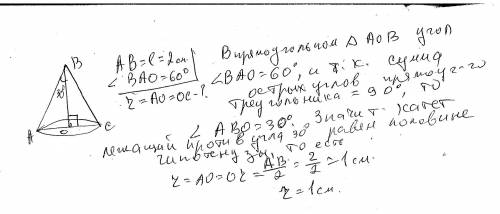 B
30°
A
O
C
AB = l = 2 см.
∠BAO = 60°
r = AO = OC - ?
В прямоугольном △ AOB угол
∠BAO = 60°, и т.к. сумма
острых углов прямоуг-го
треугольника = 90°, то
∠ ABO = 30°. Значит катет
лежащий против угла 30° равен половине
гипотенузы, то есть
r = AO = OC = AB/2 = 2/2 = 1 см.
r = 1 см.